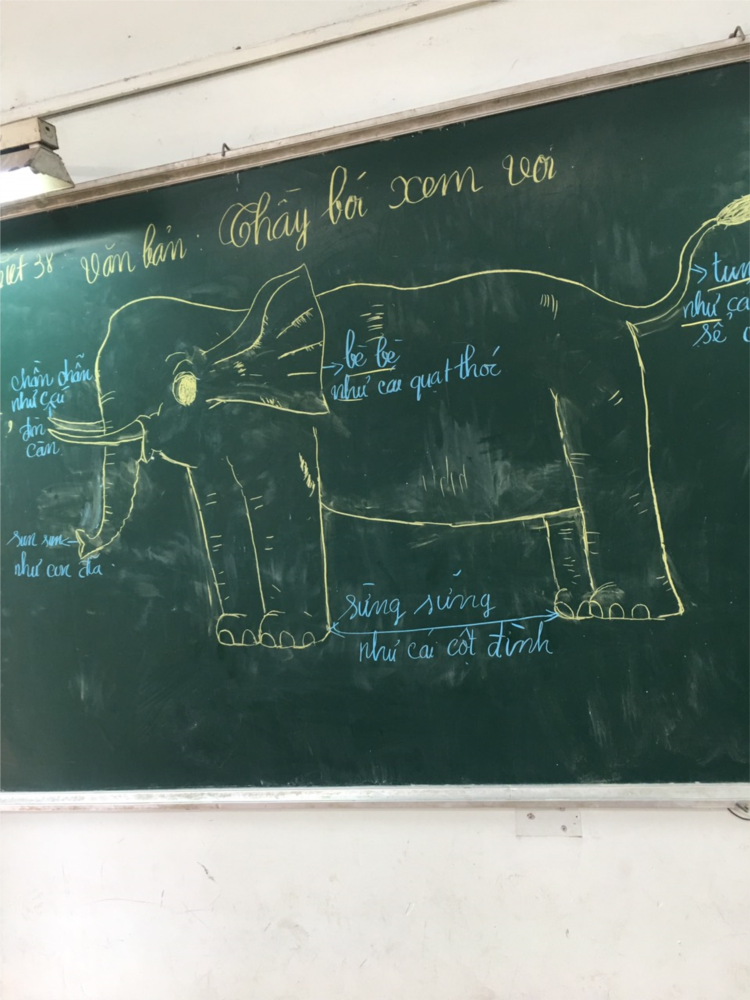 38 Văn bản: Thầy bói xem voi
chần chẫn
như cái
đòn
càn
sun sun
như con đỉa
bè bè
như cái quạt thóc
sừng sững
như cái cột đình
như
sể